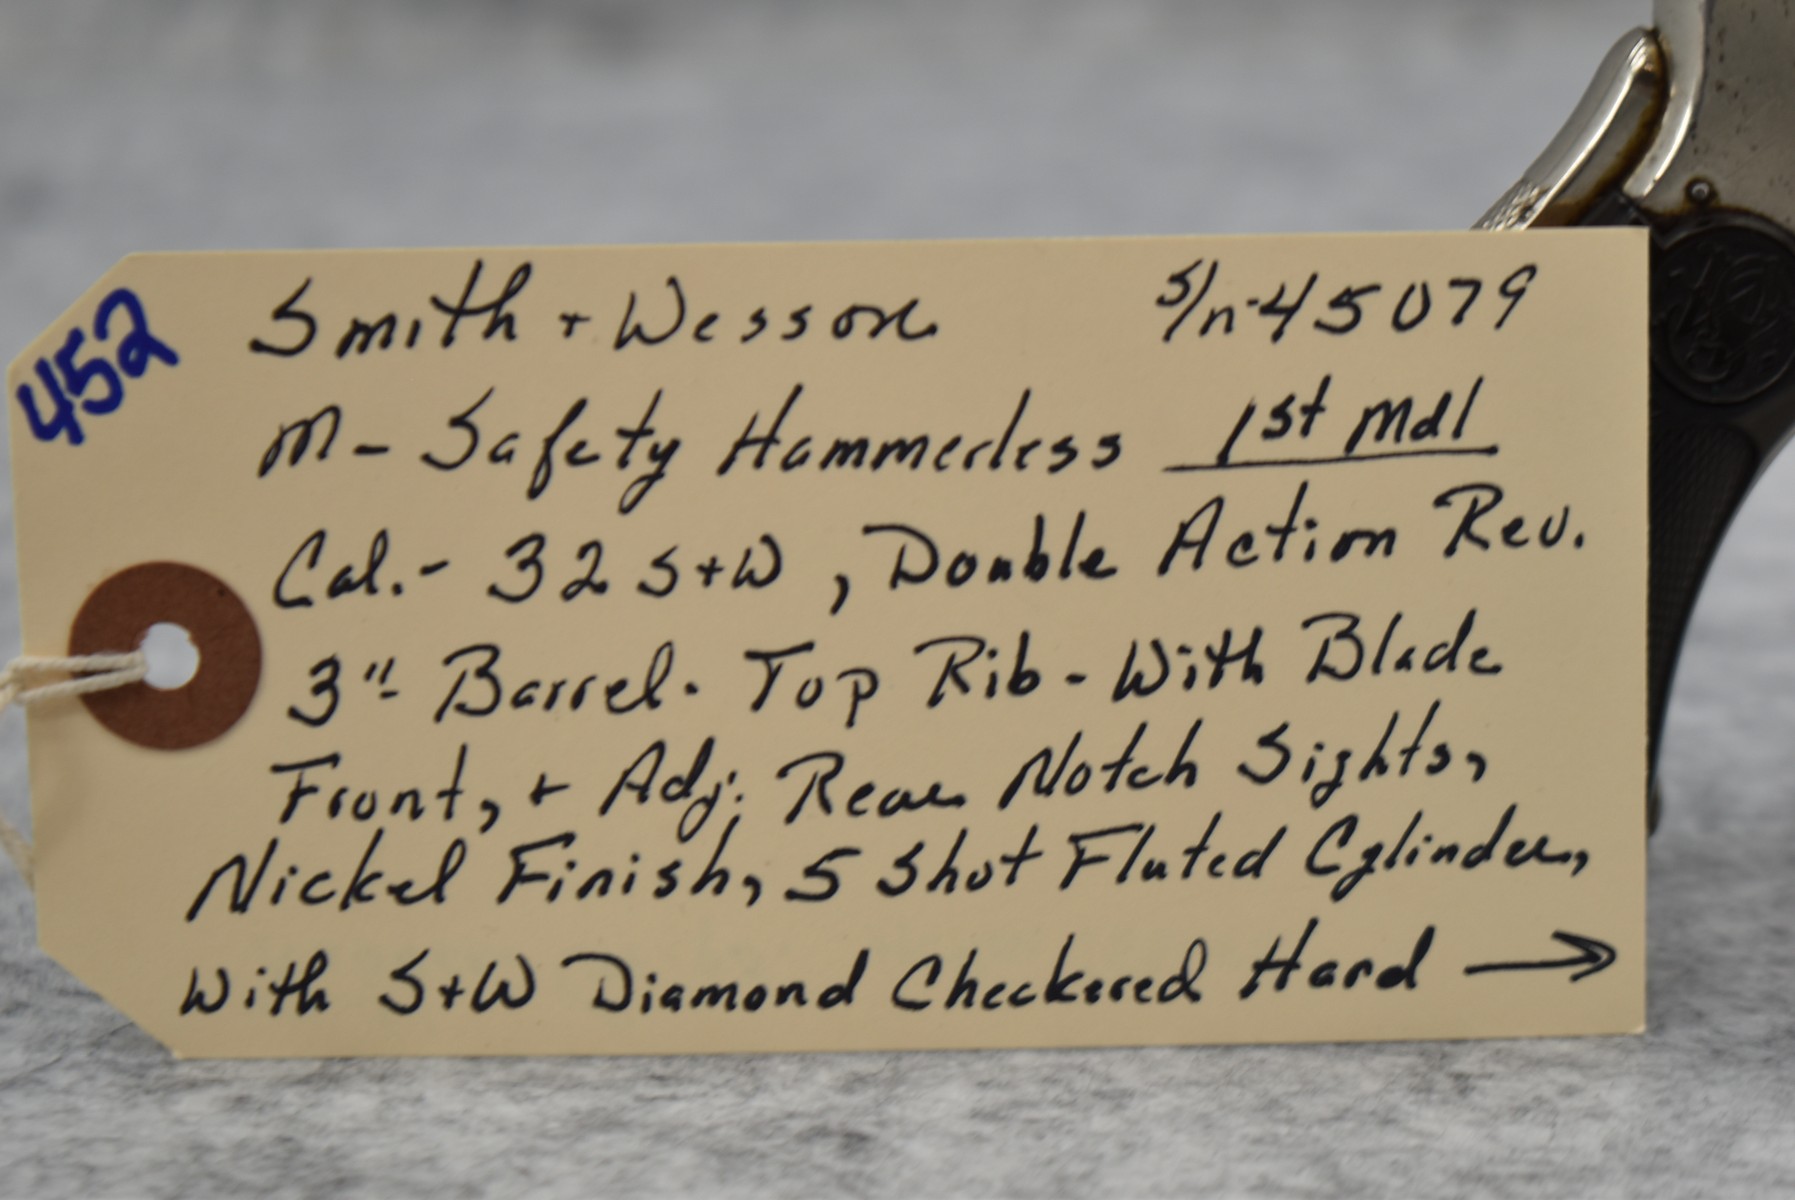 452
Smith + Wesson S/n-45079
M- Safety Hammerless 1st Mdl
Cal.- 32 S+W, Double Action Rev.
3"- Barrel- Top Rib- With Blade
Front, + Adj. Rear Notch Sights,
Nickel Finish, 5 Shot Fluted Cylinder,
With S+W Diamond Checkered Hard →